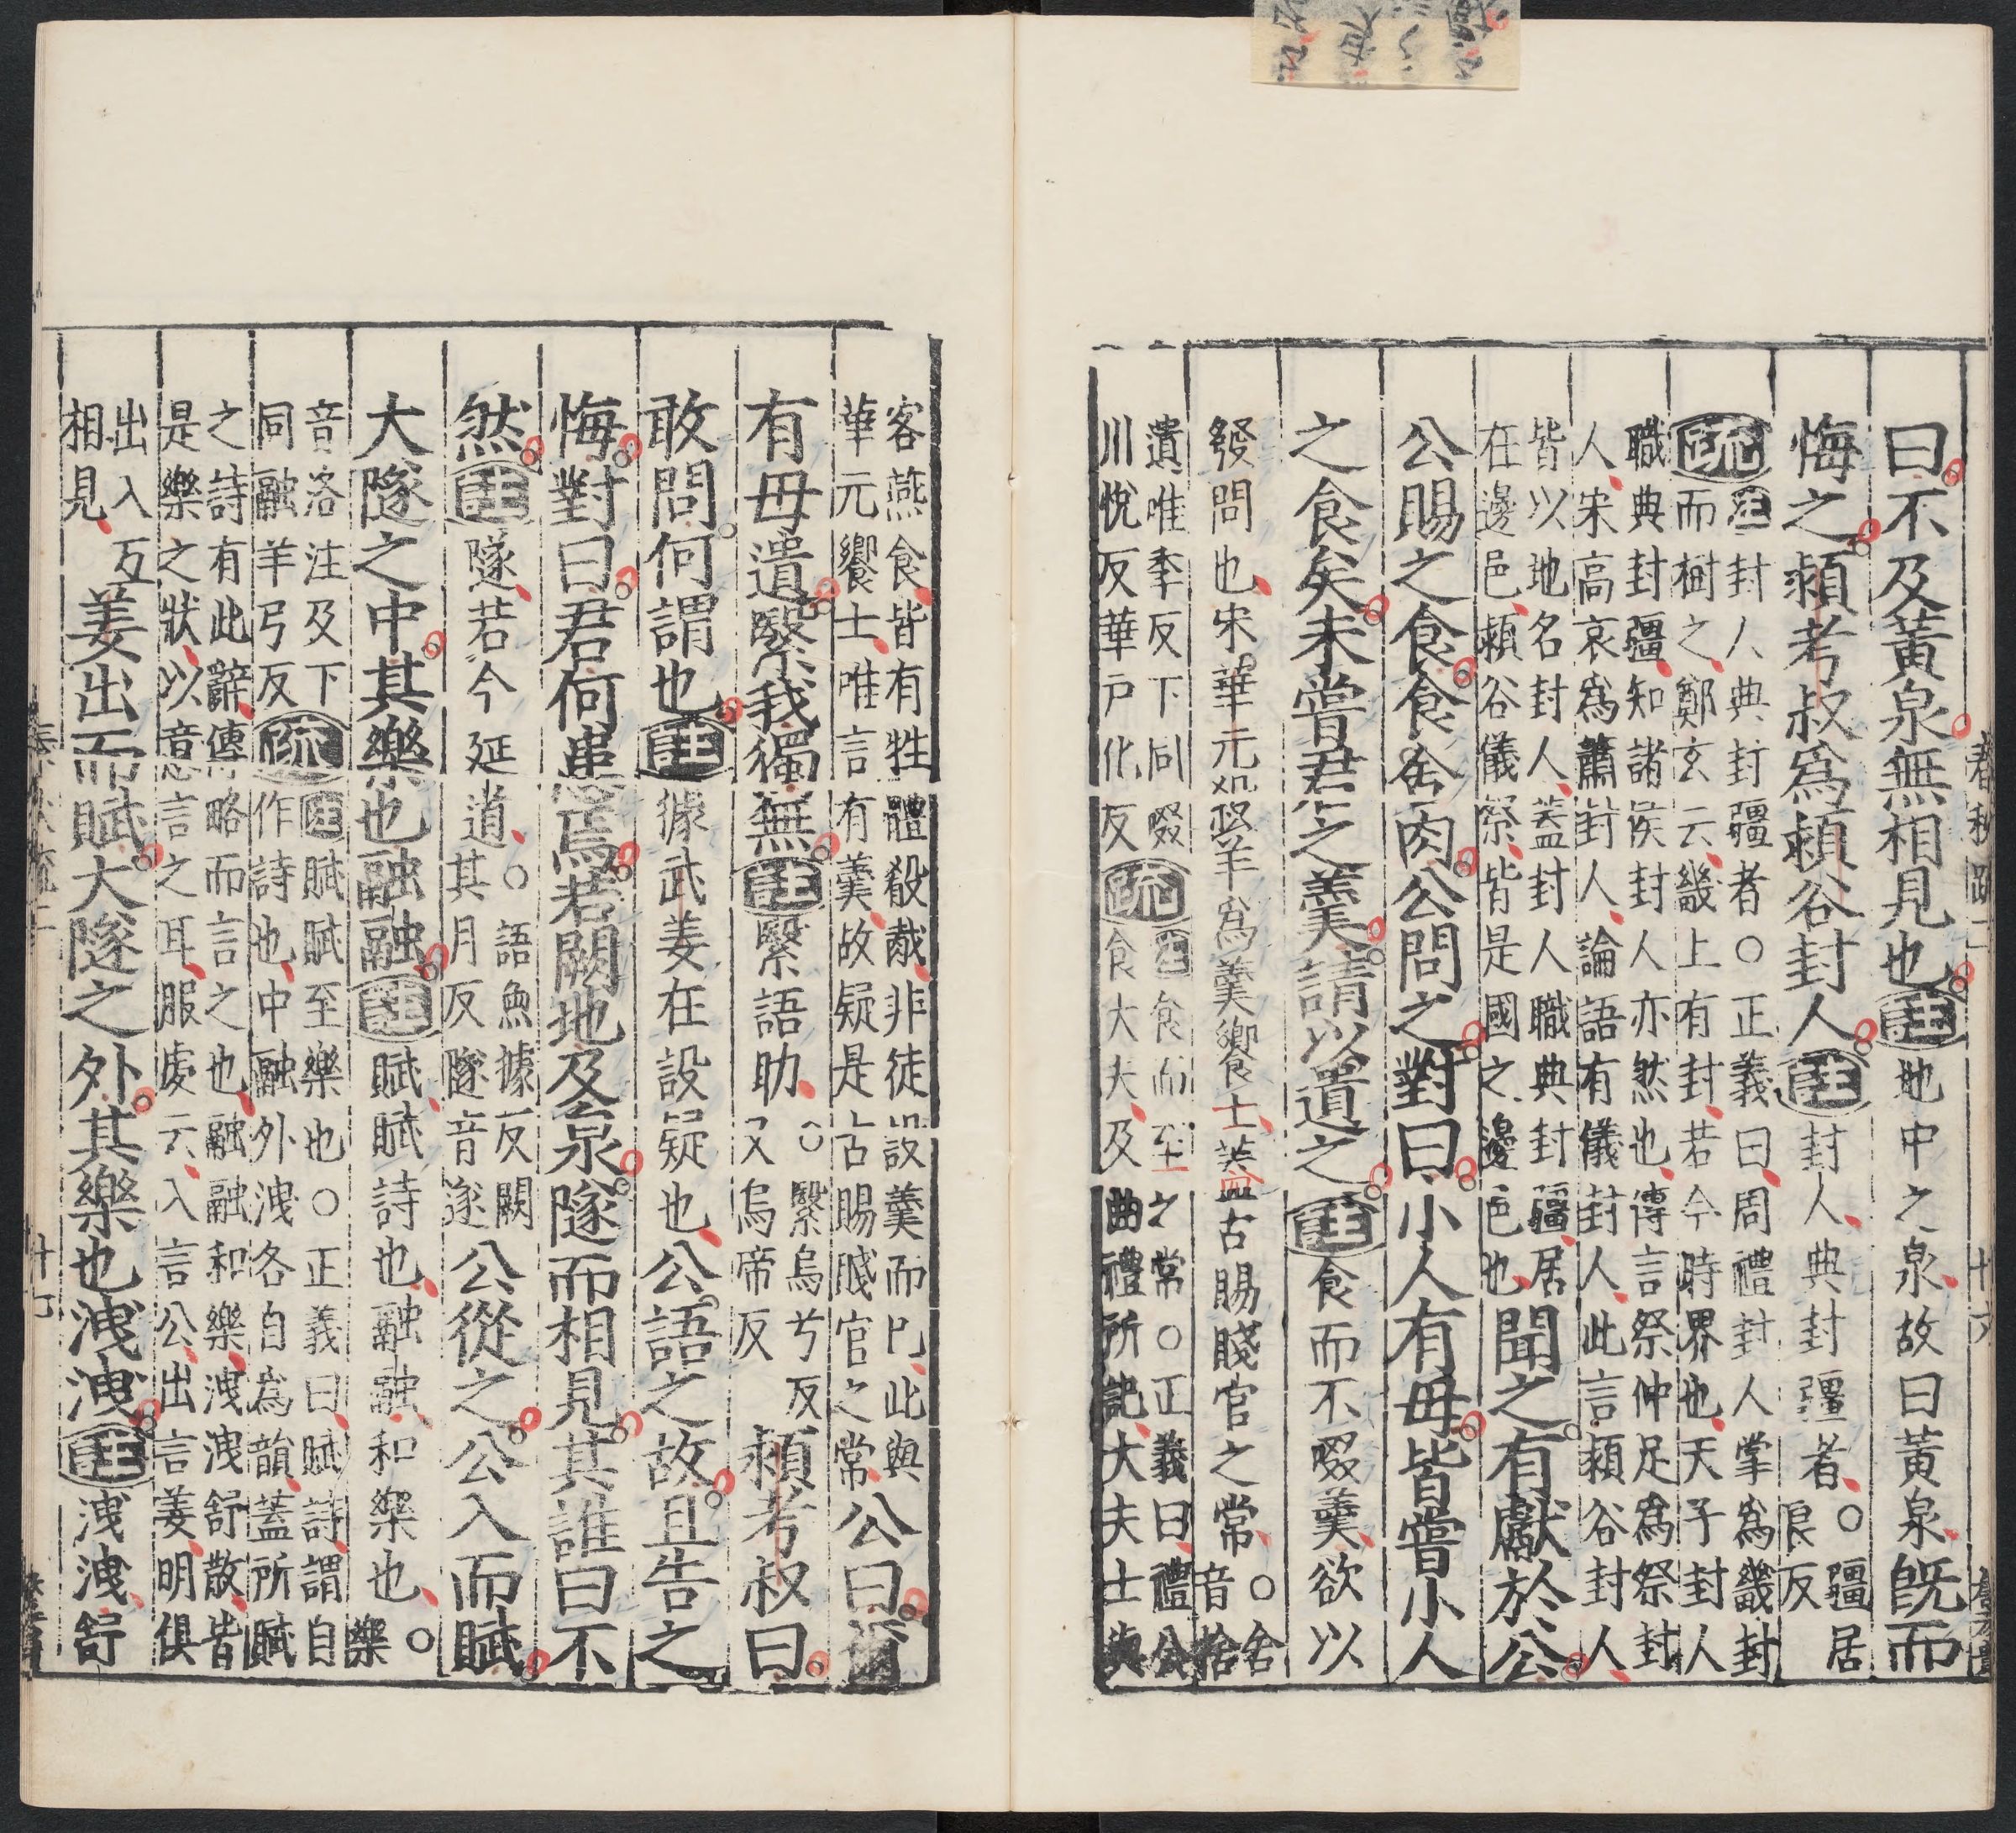 曰不及黃泉無相見也註地中之泉故曰黃泉既而
悔之頴考叔爲頴谷封人註封人典封疆者○疆居良反
疏註封人典封疆者○正義曰周禮封人掌爲畿封
而樹之鄭玄云畿上有封若今時界也天子封人
職典封疆知諸侯封人亦然也傳言祭仲足爲祭封
人宋高哀爲蕭封人論語有儀封人此言頴谷封人
皆以地名封人蓋封人職典封疆居
在邊邑頴谷儀祭皆是國之邊邑也聞之有獻於公
公賜之食食舍肉公問之對曰小人有母皆嘗小人
之食矣未嘗君之羹請以遺之註食而不啜羹欲以
發問也宋華元殺羊爲羹饗士蓋古賜賤官之常○舍音捨
遺唯季反下同啜
川悅反華戶化反疏註食而至之常○正義曰禮公
食大夫及曲禮所記大夫士與
客燕食皆有牲體殽胾非徒設羹而已此與
華元饗士唯言有羹故疑是古賜賤官之常公曰爾
有母遺繄我獨無註繄語助○繄烏兮反又烏帝反頴考叔曰
敢問何謂也註據武姜在設疑也公語之故且告之
悔對曰君何患焉若闕地及泉隧而相見其誰曰不
然註隧若今延道○語魚據反闕其月反隧音遂公從之公入而賦
大隧之中其樂也融融註賦賦詩也融融和樂也○樂
音洛注及下
同融羊弓反疏註賦賦至樂也○正義曰賦詩謂自
作詩也中融外洩各自爲韻蓋所賦
之詩有此辭傳略而言之也融融和樂洩洩舒散皆
是樂之狀以意言之耳服虔云入言公出言姜明俱
出入互
相見姜出而賦大隧之外其樂也洩洩註洩洩舒